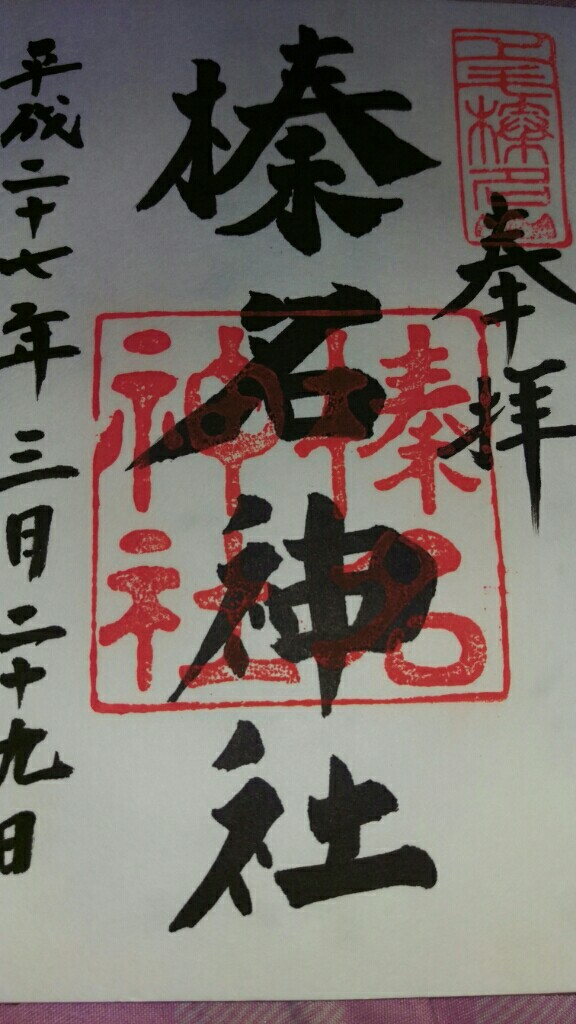 上毛榛名山
奉拝
榛名神社
榛名神社
平成二十七年三月二十九日